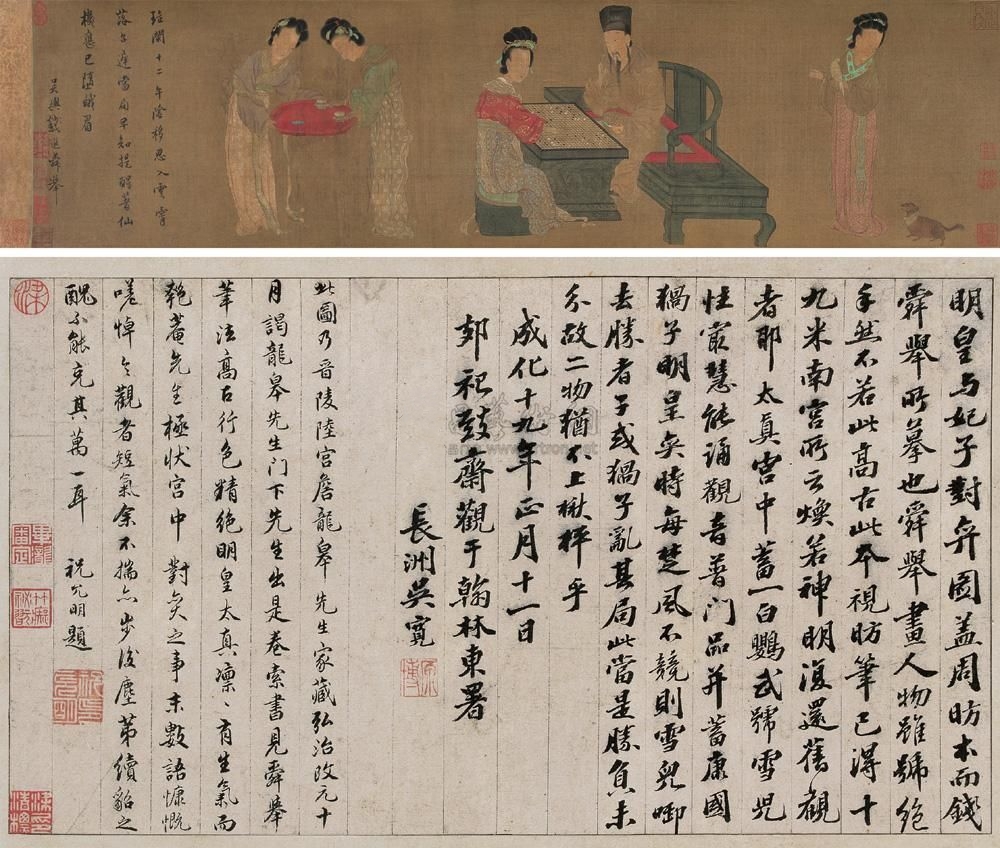 玉關十二年滄移忽入雲霄
落子遲當局早知提醒著仙
機應已隨蛾眉
吳興錢選舜舉
明皇与妃子對弈圖盖周昉本而錢
舜舉所摹也舜舉畫人物雖號絕
手然不若此高古此本視昉筆已得十
九米南宮所云煥若神明復還舊觀
者耶太真宮中蓄一白鸚武號雪兒
性最慧能誦觀音普門品并蓄康國
猧子明皇奕時每楚風不競則雪兒啣
去勝者子或猧子亂其局此當是勝負未
分故二物猶不上楸枰乎
成化十九年正月十一日
郊祀致齋觀于翰林東署
長洲吳寬
此圖乃晋陵陸宮詹龍皋先生家藏弘治改元十
月謁龍皋先生門下先生出是卷索書見舜舉
筆法高古行色精絕明皇太真凛〻有生氣而
匏菴先生極状宮中對奕之事末數語慷慨
嗟悼令觀者短氣余不揣亦步後塵第續貂之
醜不能充其萬一耳 祝允明題